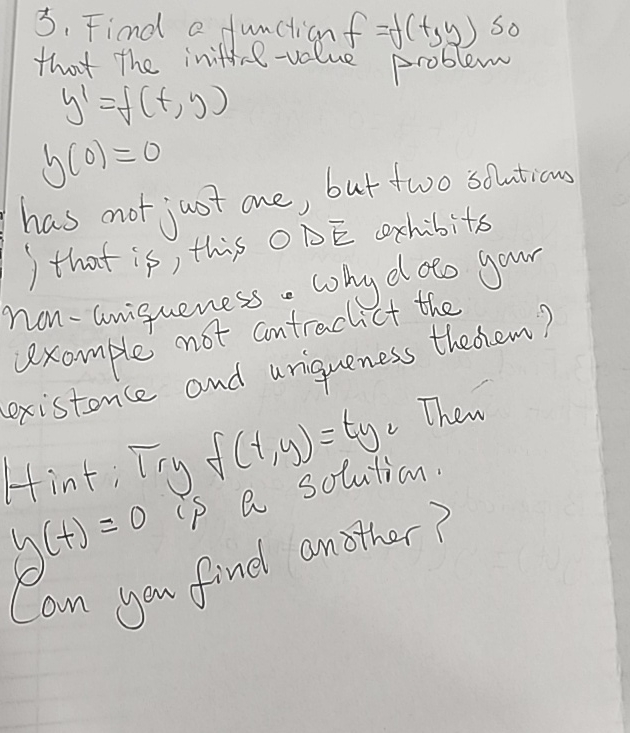 3. Find a function f = f(t,y) so
that the initial-value problem
y' = f(t,y)
y(0) = 0
has not just one, but two solutions
; that is, this ODE exhibits
non-uniqueness. why does your
example not contradict the
existence and uniqueness theorem?
Hint: Try f(t,y) = ty. Then
y(t) = 0 is a solution.
Can you find another?